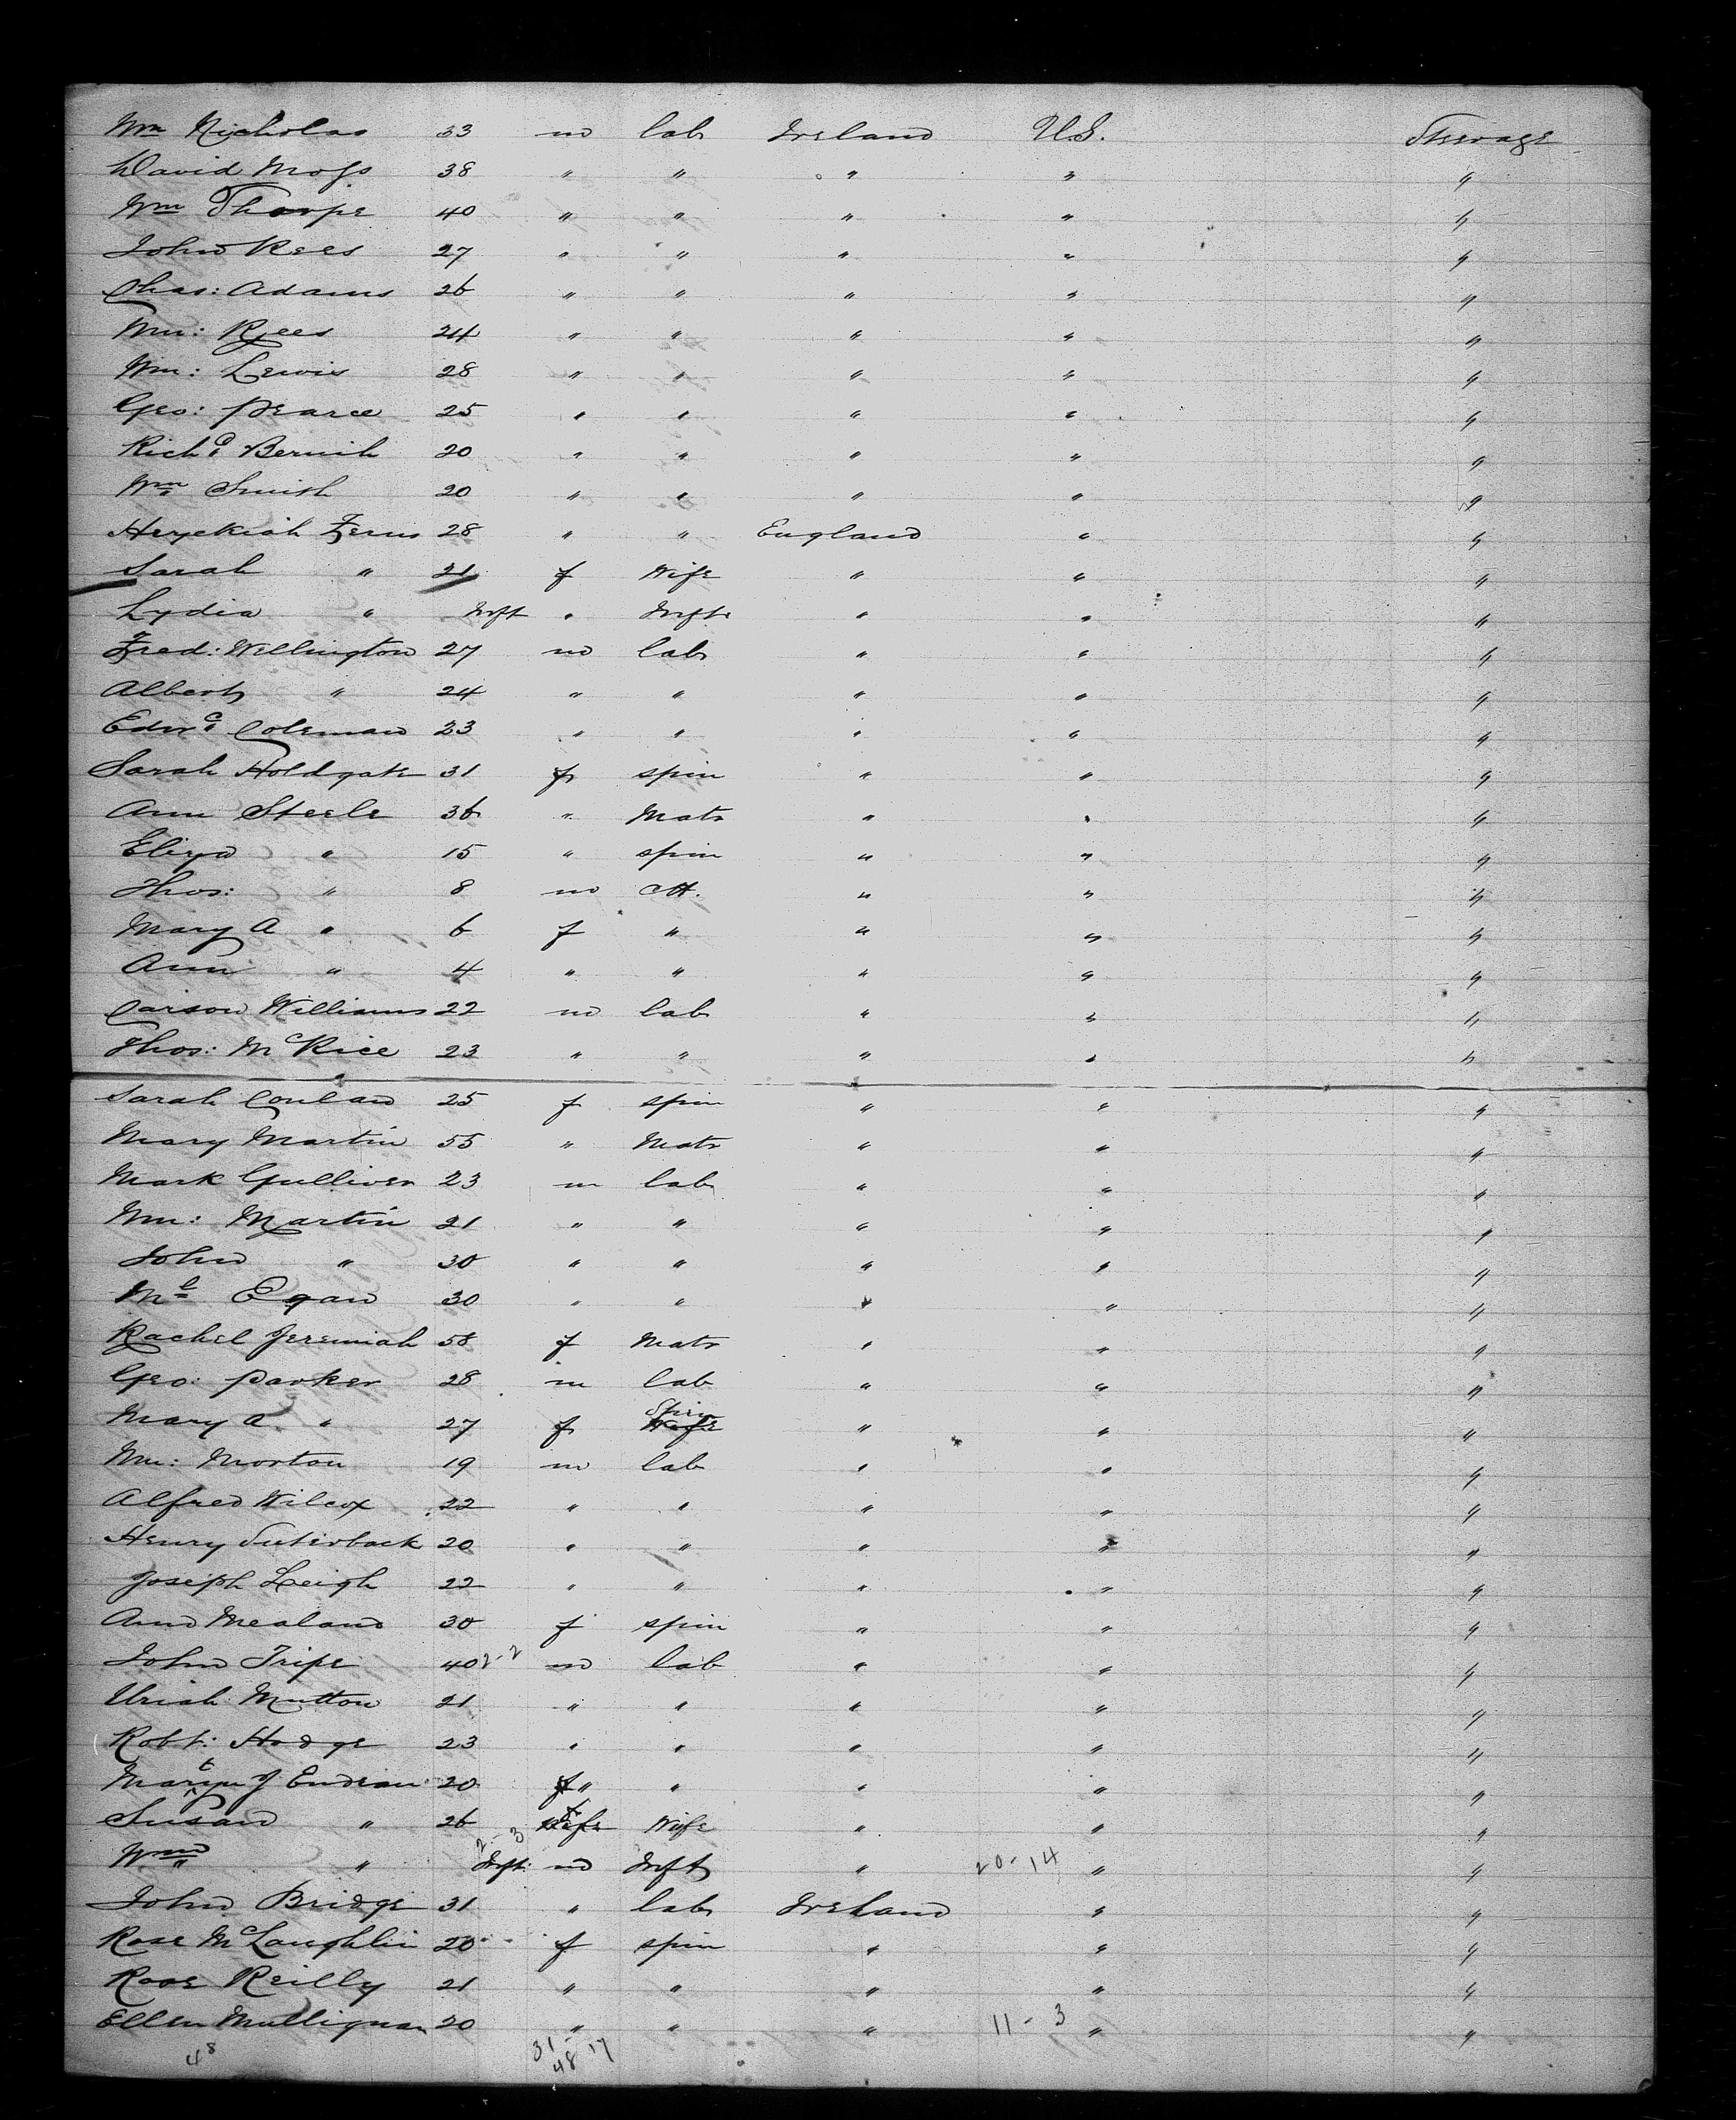 Wm Nicholas 33 m lab Ireland U.S. Steerage
David Moss 38 " " " " "
Wm Thorpe 40 " " " " "
John Rees 27 " " " " "
Chas: Adams 26 " " " " "
Wm: Rees 24 " " " " "
Wm: Lewis 28 " " " " "
Geo: Pearce 25 " " " " "
Richd 20 " " " " "
Wm Smith 20 " " " " "
Hezekiah 28 " " England " "
Sarah " 21 f Wife " " "
Lydia " Inft " Inft " " "
Fred: Wellington 27 m lab " " "
Albert " 24 " " " " "
Edwd Coleman 23 " " " " "
Sarah Holdgate 31 f spin " " "
Ann Steele 36 " Matr " " "
Eliza " 15 " spin " " "
Thos: " 8 m Ch. " " "
Mary A " 6 f " " " "
Ann " 4 " " " " "
Carson Williams 22 m lab " " "
Thos: McRice 23 " " " " "
Sarah Conlan 25 f spin " " "
Mary Martin 55 " Matr " " "
Mark Gulliver 23 m lab " " "
Wm: Martin 21 " " " " "
John " 30 " " " " "
Ml Egan 30 " " " " "
Rachel Jeremiah 58 f Matr " " "
Geo: Parker 28 m lab " " "
Mary A " 27 f Spin Wife " " "
Wm: Morton 19 m lab " " "
Alfred Wilcox 22 " " " " "
Henry 20 " " " " "
Joseph Leigh 22 " " " " "
Ann Mealand 30 f spin " " "
John Tripe 40 2-2 m lab " " "
Uriah Mutton 21 " " " " "
Robt: Hodge 23 " " " " "
J Endean 20 " " " " "
Susan " 26 f Wife " " "
Wm " 2-3 Inft: m Inft " 20-14 " "
John Bridge 31 " lab Ireland " "
Rose McLaughlin 20 f spin " " "
Rose Reilly 21 " " " " "
Ellen Mulligan 20 " " " 11-3 " "
48 31-17
48